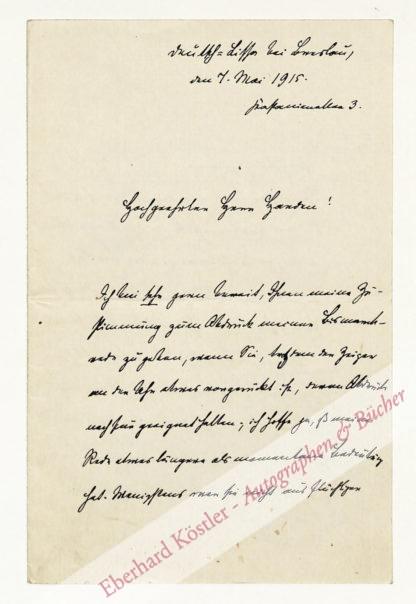 Deutsch-Lissa bei Breslau,
den 7. Mai 1915.
Kastanienallee 3.
Hochgeehrter Herr Harden!
Ich bin sehr gern bereit, Ihnen meine Zu-
stimmung zum Abdruck meiner Bismarck-
rede zu geben, wenn Sie, trotzdem der Zeiger
an der Uhr etwas vorgerückt ist, deren Abdruck
noch für geeignet halten; ich hoffe ja, daß meine
Rede etwas längere als momentane Bedeutung
hat. Wenigstens war sie nicht aus flüchtiger
Eberhard Köstler - Autographen & Bücher